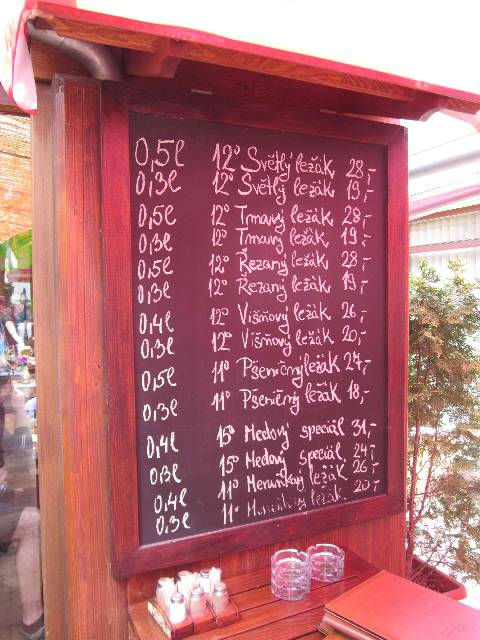 0,5l 12° Světlý ležák 28,-
0,3l 12° Světlý ležák 19,-
0,5l 12° Tmavý ležák 28,-
0,3l 12° Tmavý ležák 19,-
0,5l 12° Řezaný ležák 28,-
0,3l 12° Řezaný ležák 19,-
0,4l 12° Višňový ležák 26,-
0,3l 12° Višňový ležák 20,-
0,5l 11° Pšeničný ležák 24,-
0,3l 11° Pšeničný ležák 18,-
0,4l 15° Medový speciál 31,-
0,3l 15° Medový speciál 24,-
0,4l 11° Meruňkový ležák 26,-
0,3l 11° Meruňkový ležák 20,-